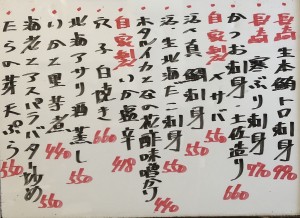 長崎 生本鮪トロ刺身 990
長崎 寒ぶり刺身 770
かつお刺身 土佐造り 660
自家製 〆サバ 550
活〆真鯛刺身 550
生北海だこ刺身 550
ホタルイカとなの花酢味噌がけ 440
自家製 いか塩辛 418
穴子白焼き 660
北海アサリ酒蒸し 550
いかと里芋煮 440
海老とアスパラバター炒め 550
たらの芽天ぷら 550